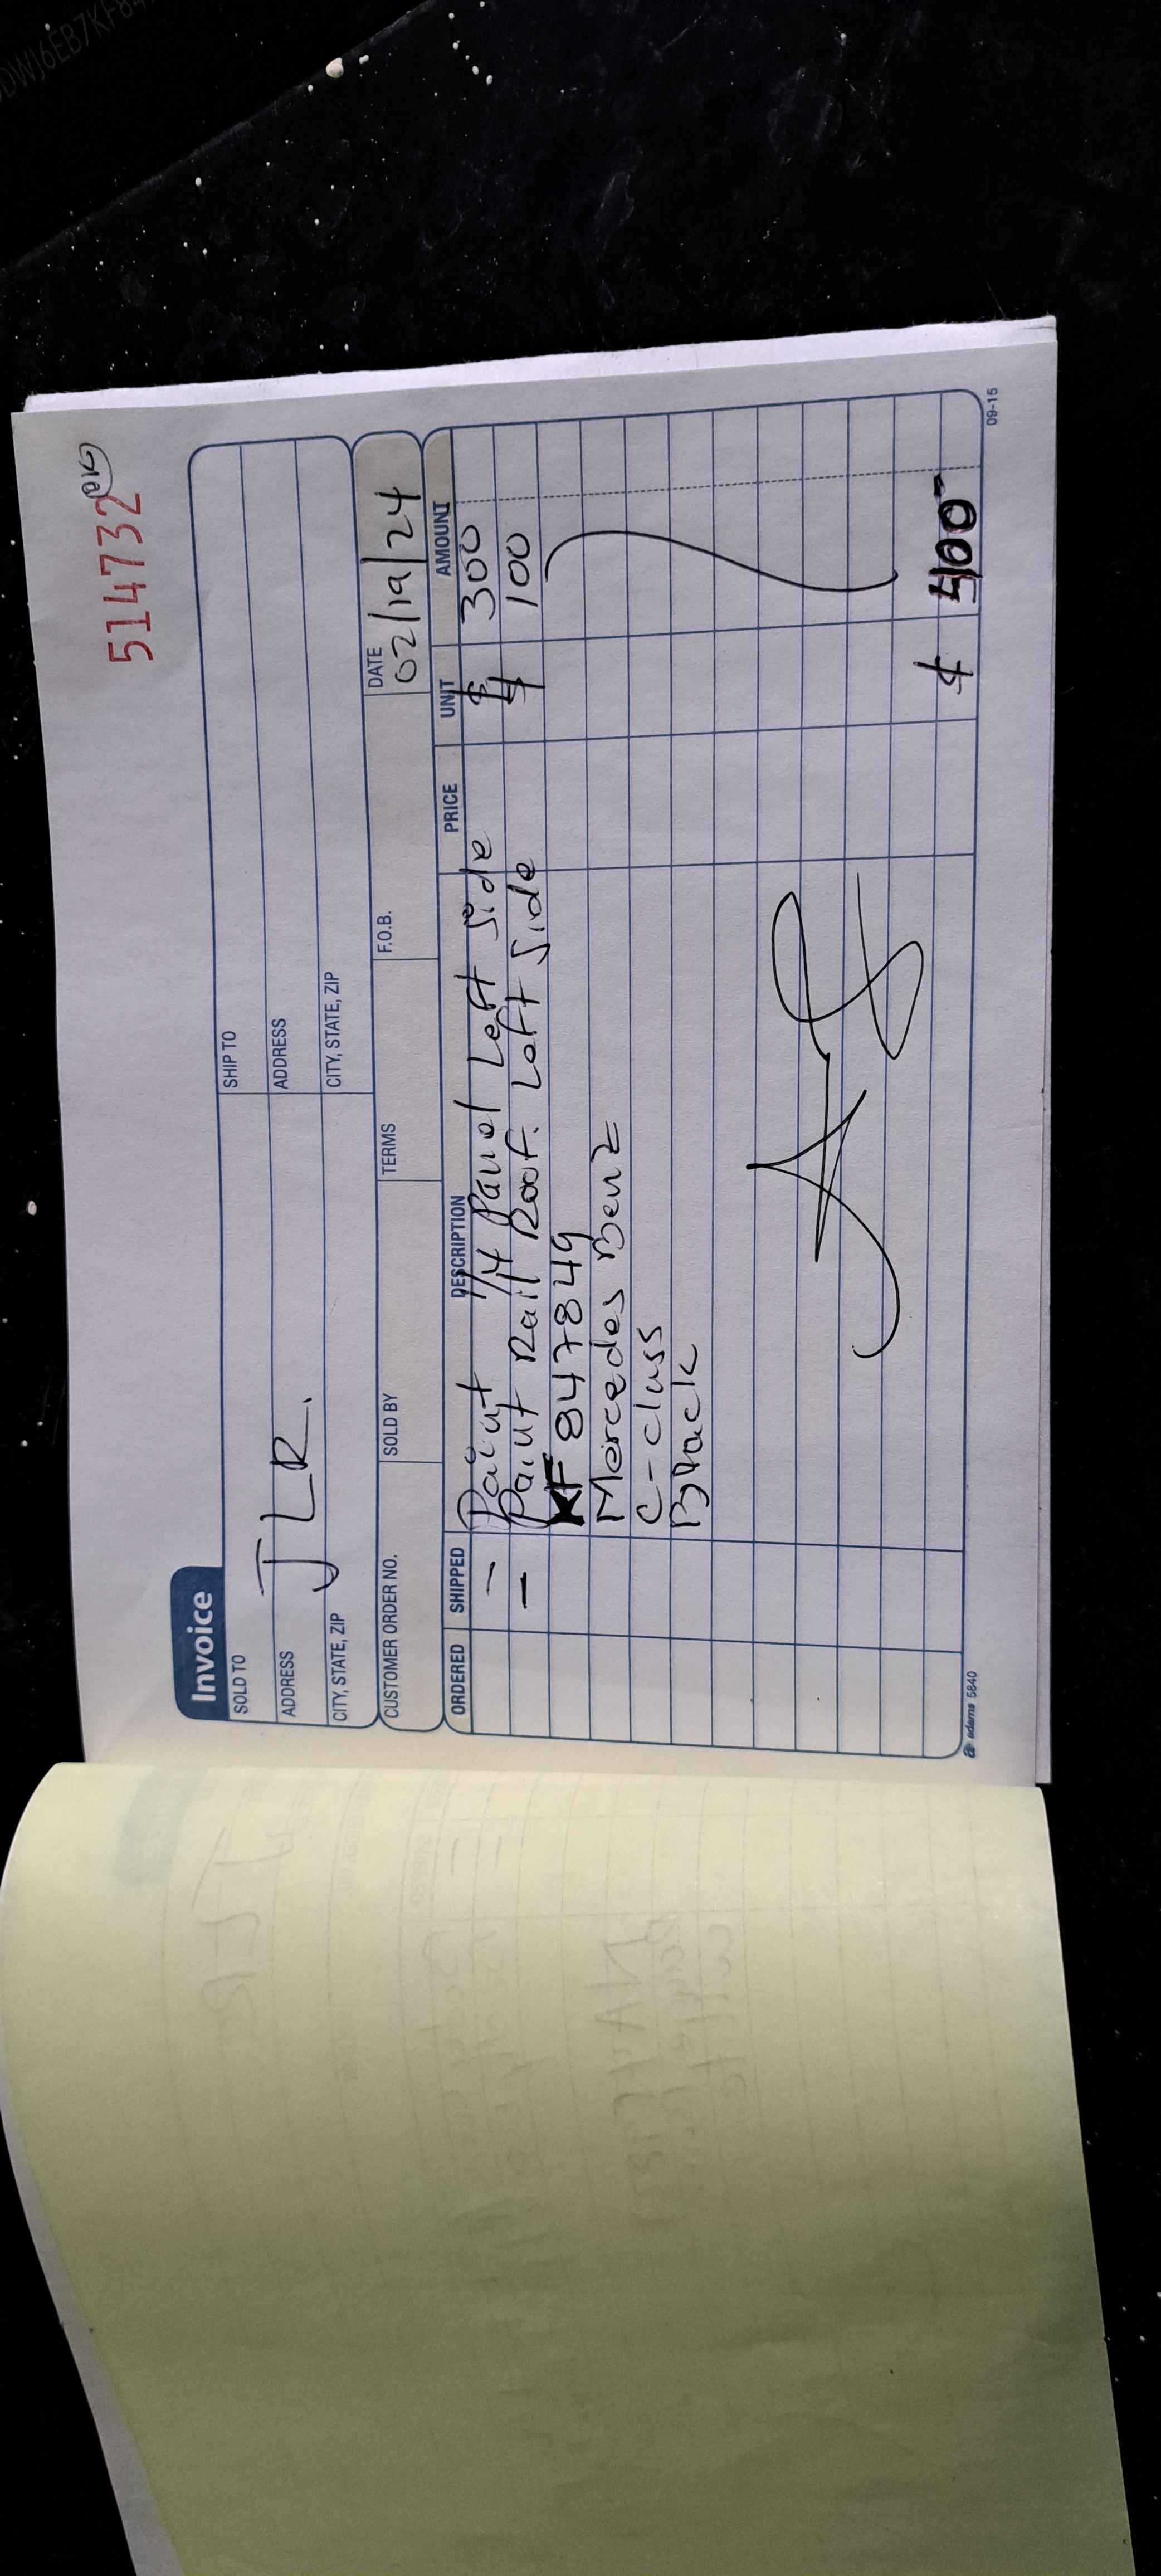 514732
Invoice
SOLD TO
SHIP TO
JLR.
ADDRESS
ADDRESS
CITY, STATE, ZIP
CITY, STATE, ZIP
CUSTOMER ORDER NO. SOLD BY TERMS F.O.B. DATE
02/19/24
ORDERED SHIPPED DESCRIPTION PRICE UNIT AMOUNT
— Paint 1/4 Panel Left Side $ 300
— Paint Rail Roof. Left Side $ 100
KF847849
Mercedes Benz
C-class
Black
$ 400
adams 5840 09-15